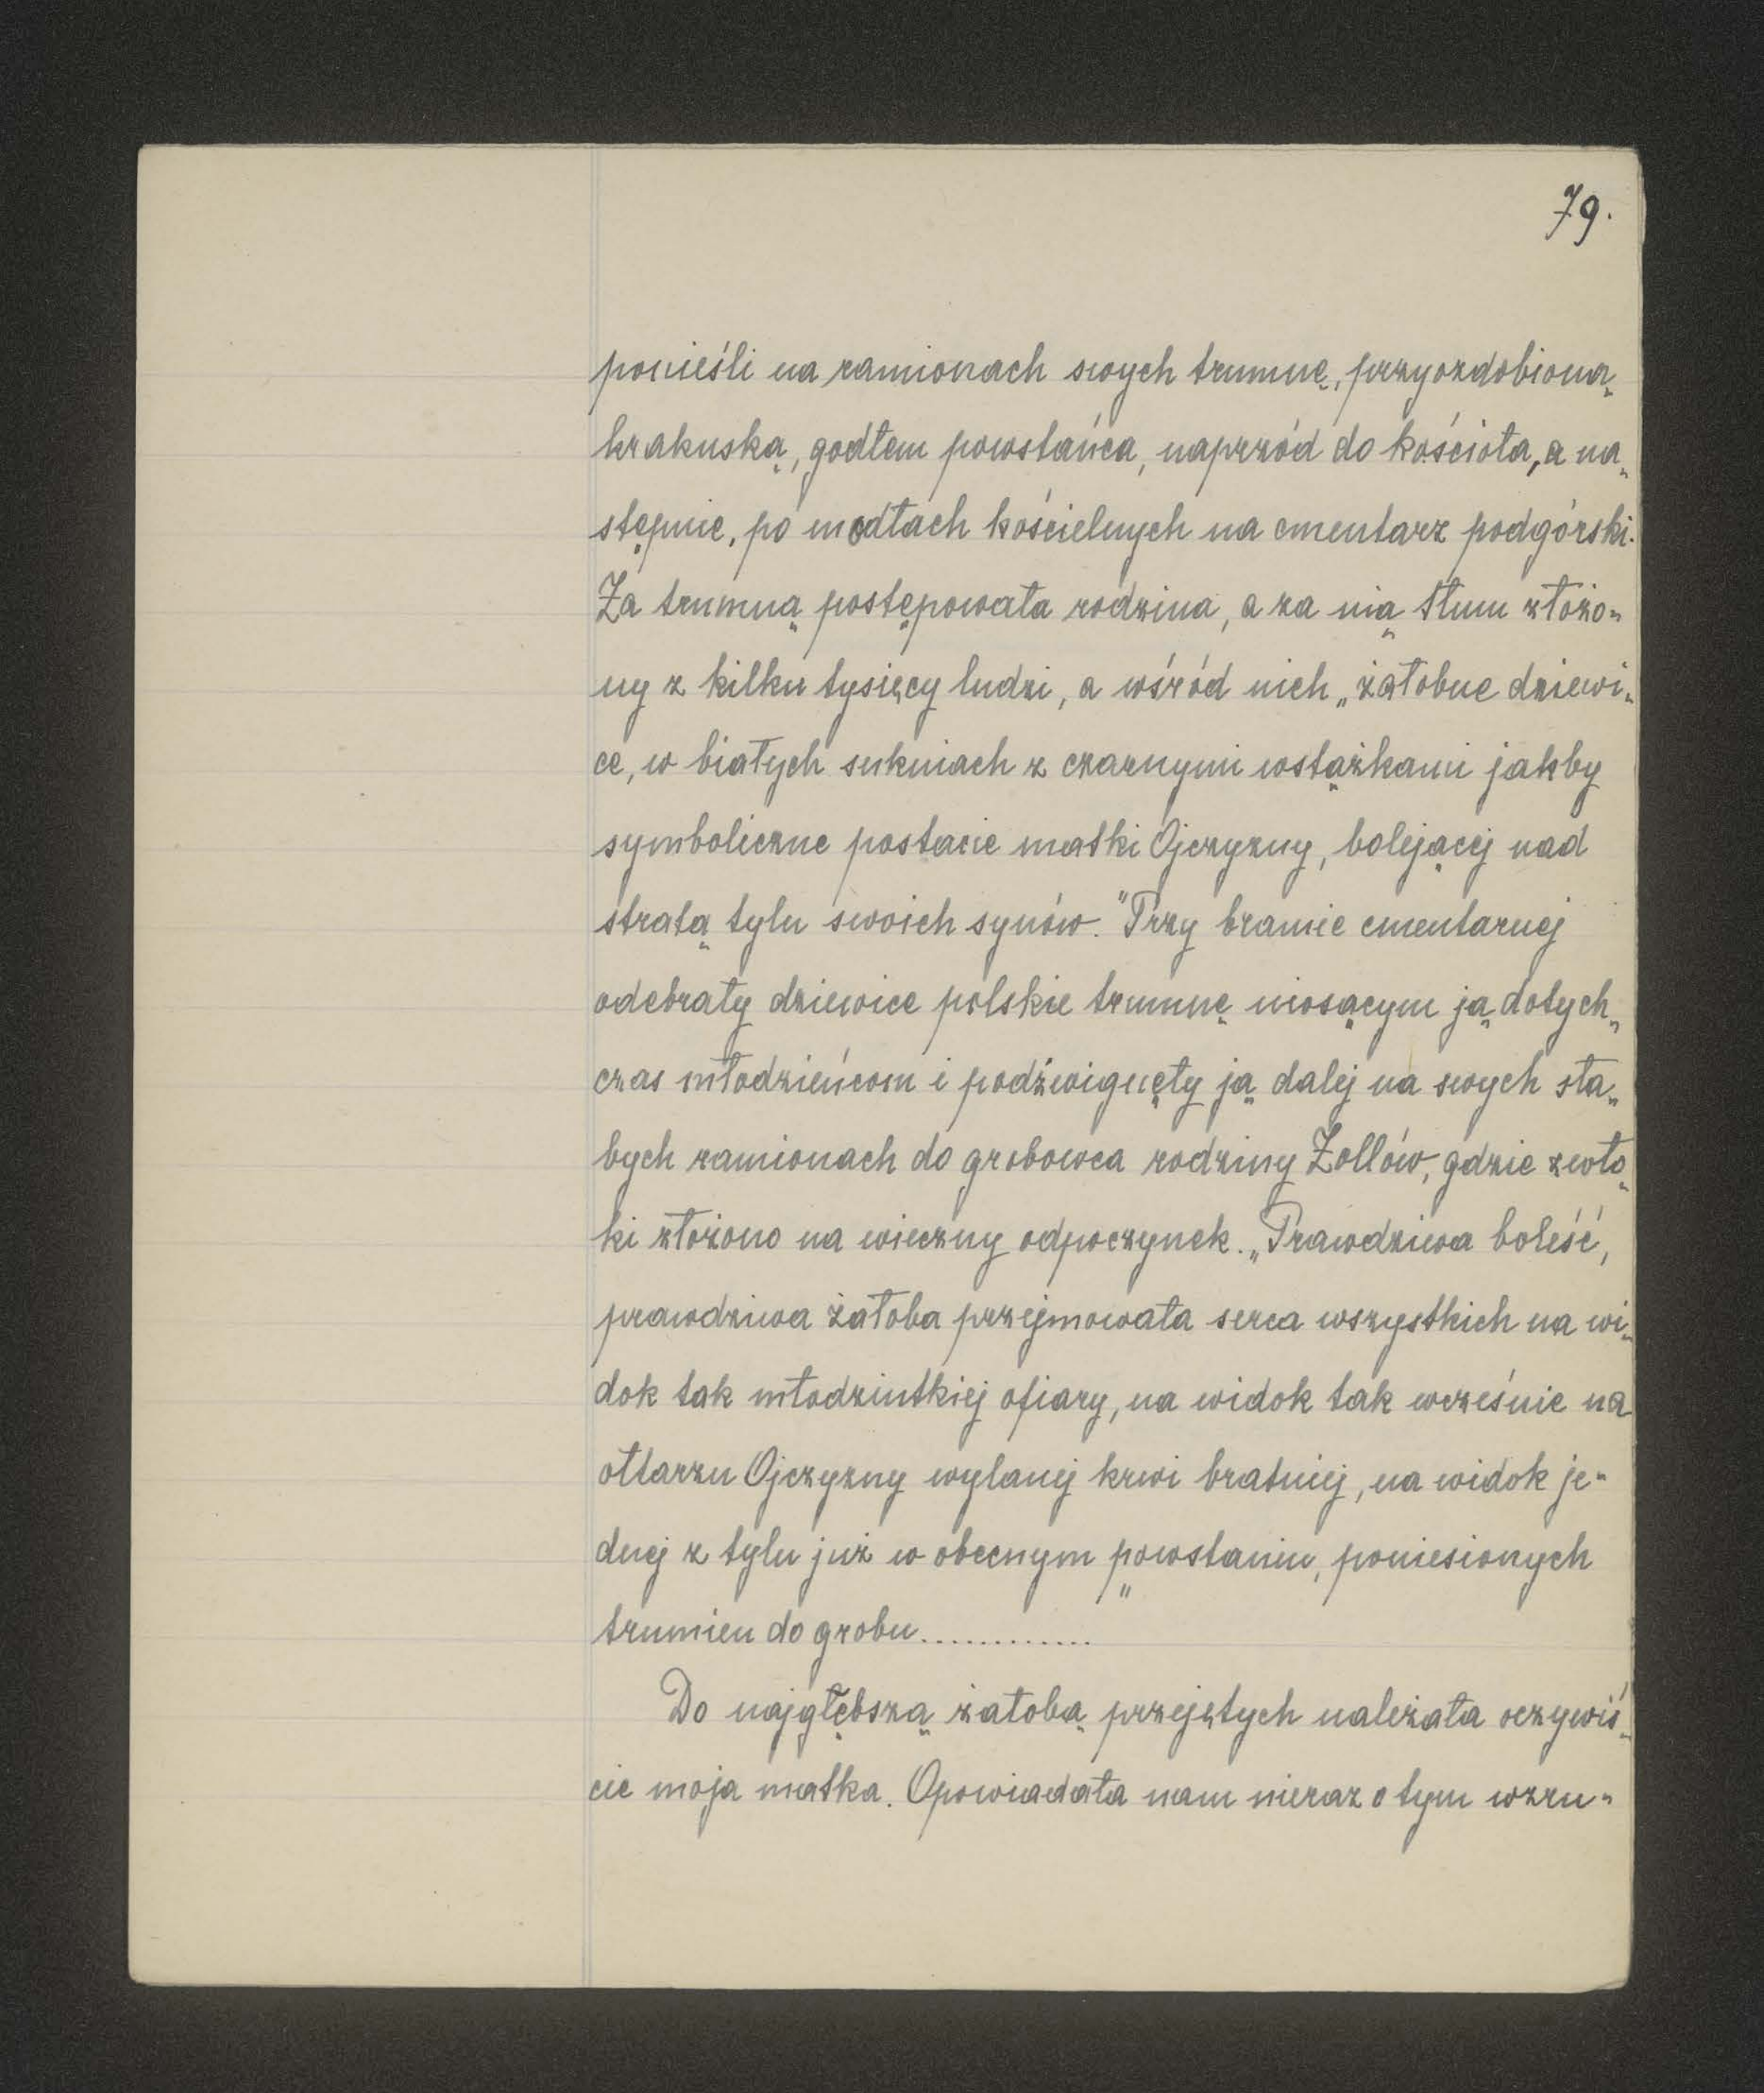 79.
ponieśli na ramionach swych trumnę, przyozdobioną
krakuską, godłem powstańca, naprzód do kościoła, a na„
stępnie, po modłach kościelnych na cmentarz podgórski.
Za trumną postępowała rodzina, a za nią tłum złożo„
ny z kilku tysięcy ludzi, a wśród nich „żałobne dziewi„
ce, w białych sukniach z czarnymi wstążkami jakby
symboliczne postacie matki Ojczyzny, bolejącej nad
stratą tylu swoich synów." Przy bramie cmentarnej
odebrały dziewice polskie trumnę niosącym ją dotych„
czas młodzieńcom i podźwignęły ją dalej na swych sła„
bych ramionach do grobowca rodziny Zollów, gdzie zwło„
ki złożono na wieczny odpoczynek. „Prawdziwa boleść,
prawdziwa żałoba przejmowała serca wszystkich na wi„
dok tak młodziutkiej ofiary, na widok tak wcześnie na
ołtarzu Ojczyzny wylanej krwi bratniej, na widok je„
dnej z tylu już w obecnym powstaniu, poniesionych
trumien do grobu............."
Do najgłębszą żałobą przejętych należała oczywiś„
cie moja matka. Opowiadała nam nieraz o tym wzru„